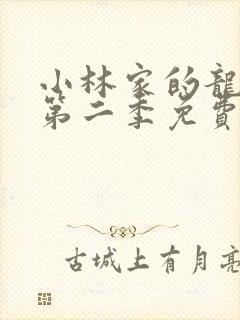 小林家的龍
第二季免費
古城上有月亮